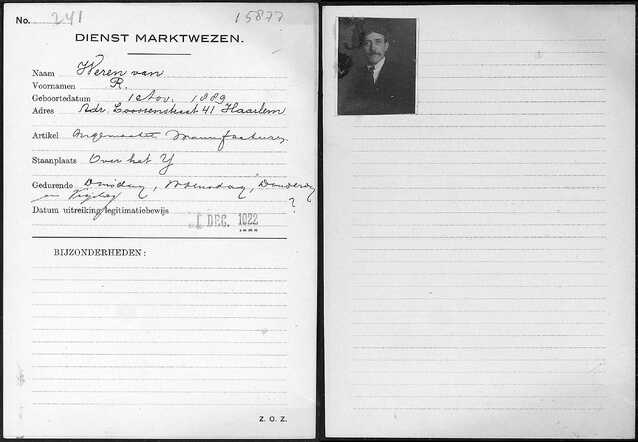 No. 241 15877
DIENST MARKTWEZEN.
Naam Weren van
Voornamen R.
Geboortedatum 1 Nov. 1889
Adres Adr. Loosjesstraat 41 Haarlem
Artikel Ongemaakte Manufacturen
Staanplaats Over het Y
Gedurende Dinsdag, Woensdag, Donderdag
en Vrijdag ?
Datum uitreiking legitimatiebewijs 1 DEC. 1922
BIJZONDERHEDEN:
Z. O. Z.